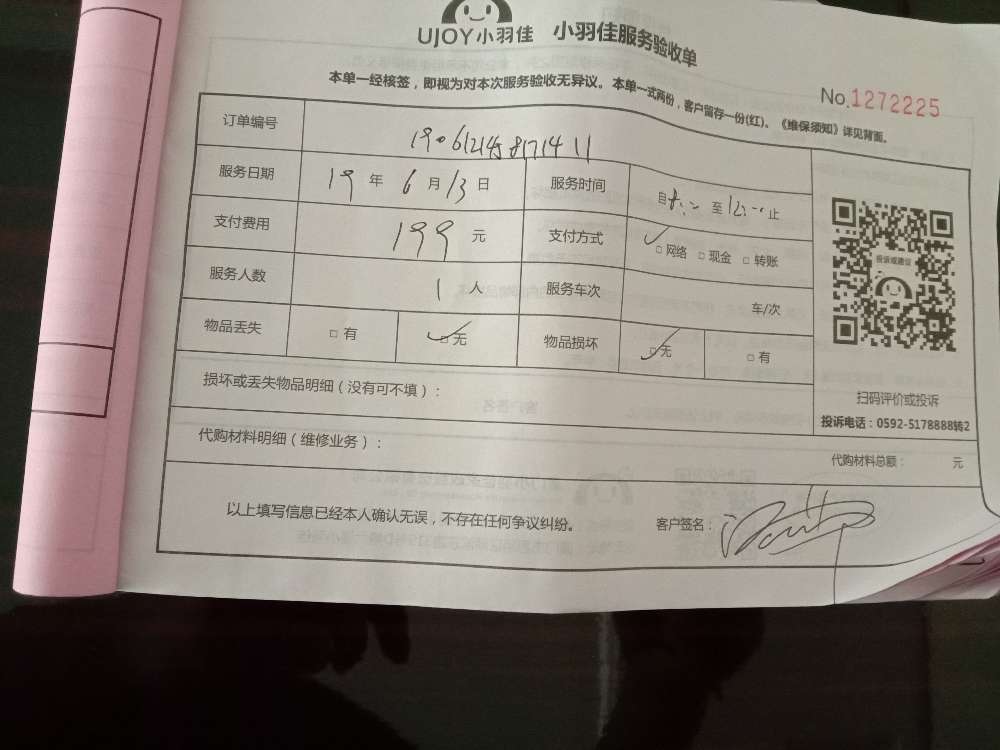 UJOY小羽佳 小羽佳服务验收单
本单一经核签，即视为对本次服务验收无异议。本单一式两份，客户留存一份(红)。《维保须知》详见背面。
No.1272225
订单编号
服务日期 19 年 6 月 13 日 服务时间 自 至 12:00 止
支付费用 199 元 支付方式 ✓□网络 □现金 □转账
服务人数 1 人 服务车次 车/次
物品丢失 □有 ✓□无 物品损坏 ✓□无 □有
投诉或建议
扫码评价或投诉
投诉电话：0592-5178888转2
损坏或丢失物品明细（没有可不填）：
代购材料明细（维修业务）： 代购材料总额： 元
以上填写信息已经本人确认无误，不存在任何争议纠纷。 客户签名：